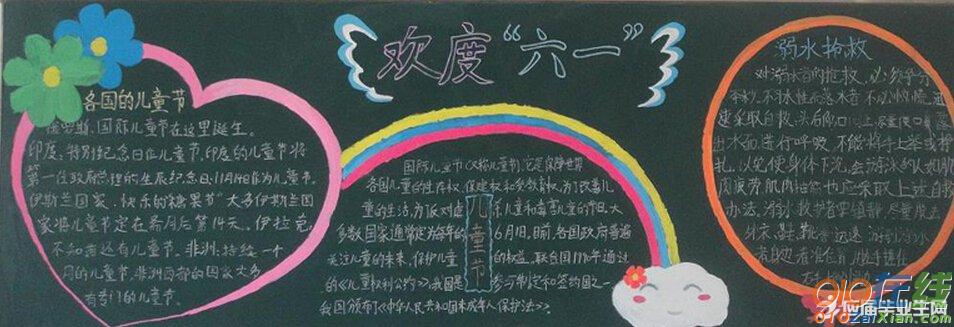 欢度“六一”
各国的儿童节
俄罗斯:国际儿童节在这里诞生。
印度:特别纪念日作儿童节,印度的儿童节将
第一任政府总理的生辰纪念日11月14日作为儿童节。
伊斯兰国家:快乐的糖果节”大多伊斯兰国
家将儿童节定在斋月后第14天。伊拉克:
不知道还有儿童节。非洲:持续一个
月的儿童节。非洲西部的国家大多
有专门的儿童节。
国际儿童节(又称儿童节)它是保障世界
各国儿童的生存权、保健权和受教育权,为了改善儿
童的生活,为反对虐杀儿童和毒害儿童的节日大
多数国家通常定为每年的6月1日。目前,各国政府普遍
关注儿童的未来,保护儿童的权益,联合国1990年通过
的《儿童权利公约》,我国是参与制定和签约国之一
我国颁布了《中华人民共和国未成年人保护法》。
儿童节
溺水抢救
对溺水者的抢救,必须争分
夺秒。不习水性而落水者
速采取自救:头后仰口向上,尽量使口鼻露
出水面,进行呼吸,不能将手上举或挣
扎,以免使身体下沉。会游泳的人如肌
肉疲劳肌肉抽筋也应采取上述自救
办法。溺水救护者要镇静,尽量脱去
外衣、鞋、靴等迅速游到溺水
010在线
010zaixian.com
应届毕业生网